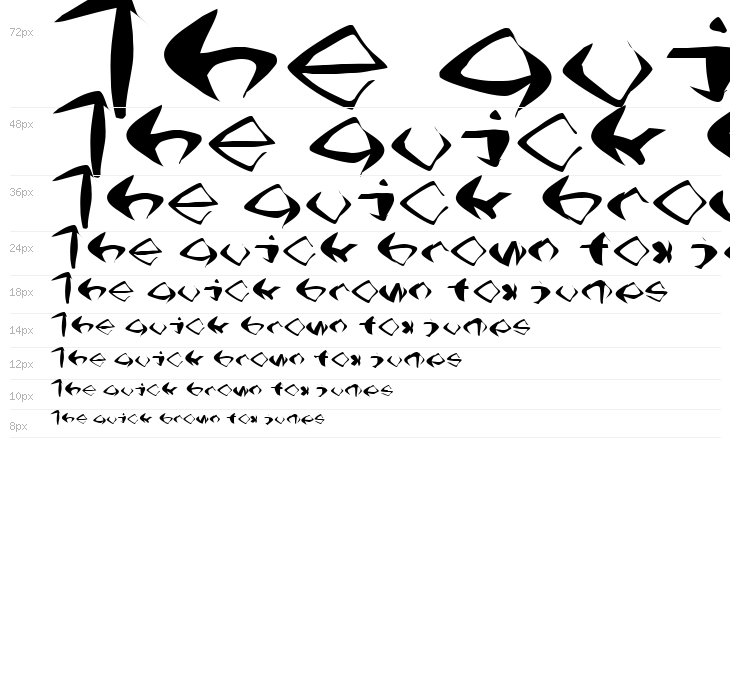 72px The qui
48px The quick
36px The quick brow
24px The quick brown fox
18px The quick brown fox jumps
14px The quick brown fox jumps
12px The quick brown fox jumps
10px The quick brown fox jumps
8px The quick brown fox jumps